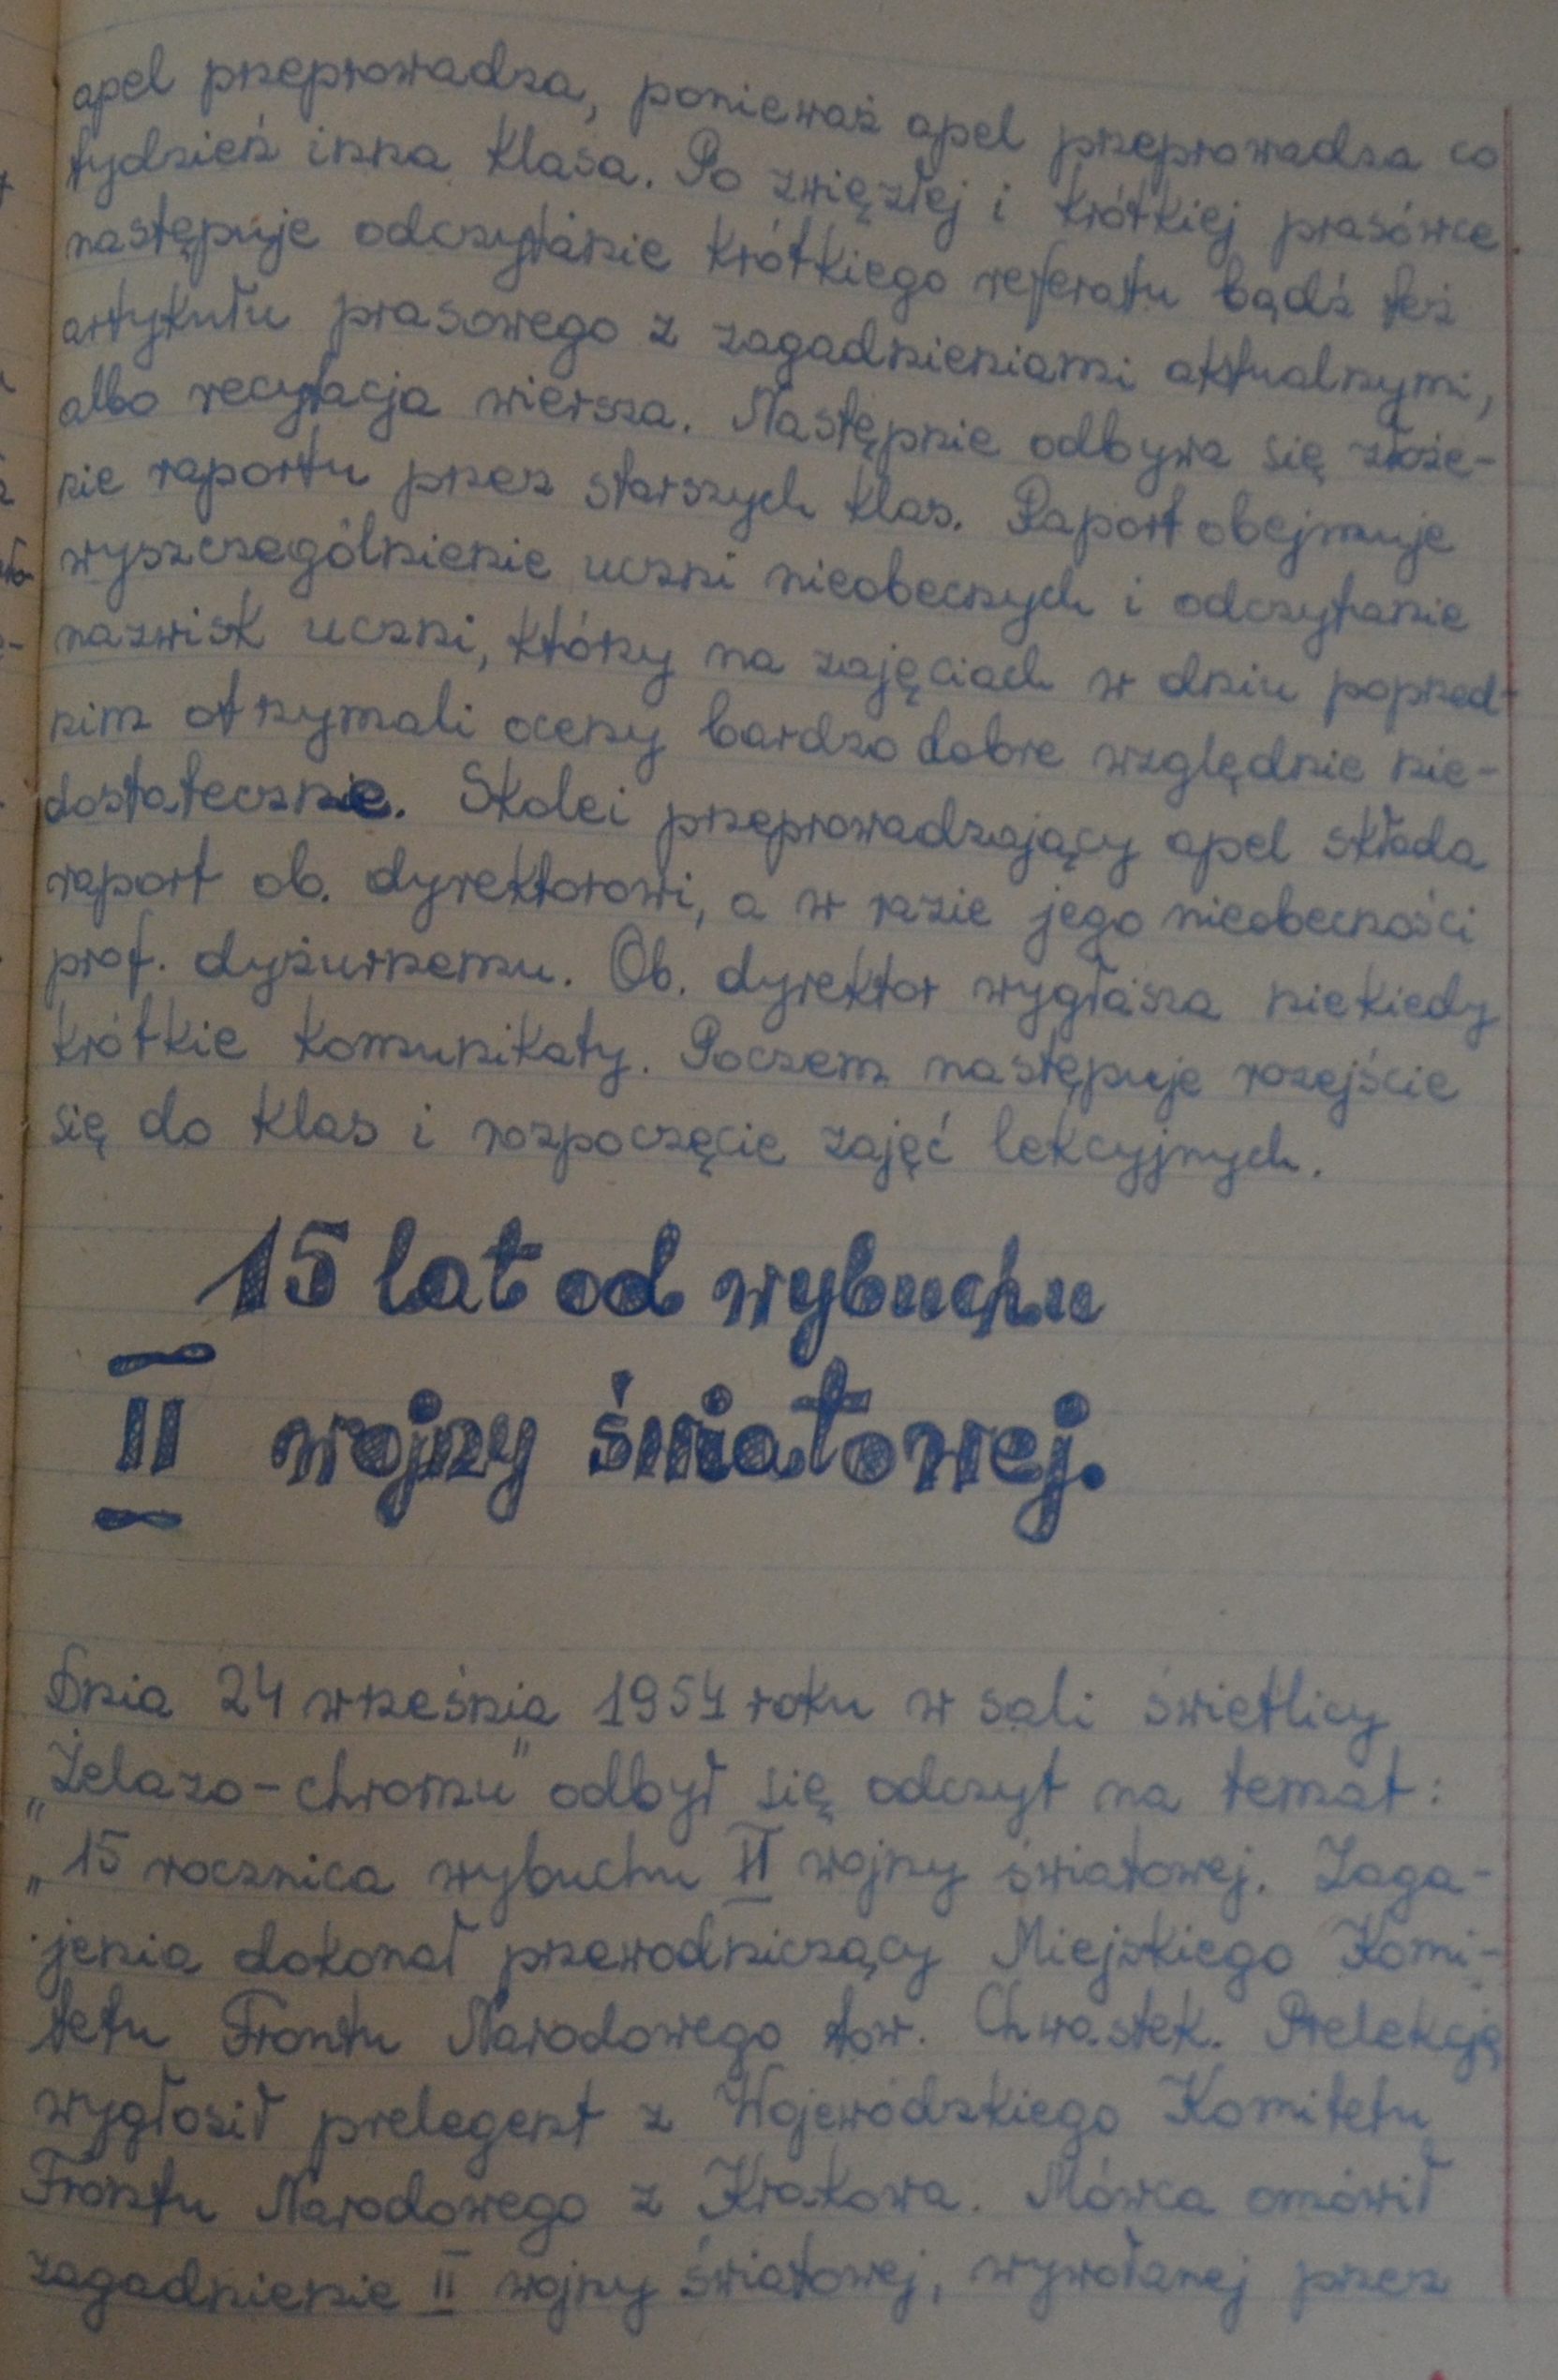 apel przeprowadza, ponieważ apel przeprowadza co
tydzień inna klasa. Po zwięzłej i krótkiej prasówce
następuje odczytanie krótkiego referatu bądź też
artykułu prasowego z zagadnieniami aktualnymi,
albo recytacja wiersza. Następnie odbywa się złoże-
nie raportu przez starszych klas. Raport obejmuje
wyszczególnienie uczni nieobecnych i odczytanie
nazwisk uczni, którzy na zajęciach w dniu poprzed-
nim otrzymali oceny bardzo dobre względnie nie-
dostateczne. Skolei przeprowadzający apel składa
raport ob. dyrektorowi, a w razie jego nieobecności
prof. dyżurnemu. Ob. dyrektor wygłasza niekiedy
krótkie komunikaty. Poczem następuje rozejście
się do klas i rozpoczęcie zajęć lekcyjnych.
15 lat od wybuchu
II wojny światowej.
Dnia 24 września 1954 roku w sali świetlicy
„Żelazo-chromu" odbył się odczyt na temat:
„15 rocznica wybuchu II wojny światowej. Zaga-
jenia dokonał przewodniczący Miejskiego Komi-
tetu Frontu Narodowego tow. Chwastek. Prelekcję
wygłosił prelegent z Wojewódzkiego Komitetu
Frontu Narodowego z Krakowa. Mówca omówił
zagadnienie II wojny światowej, wywołanej przez